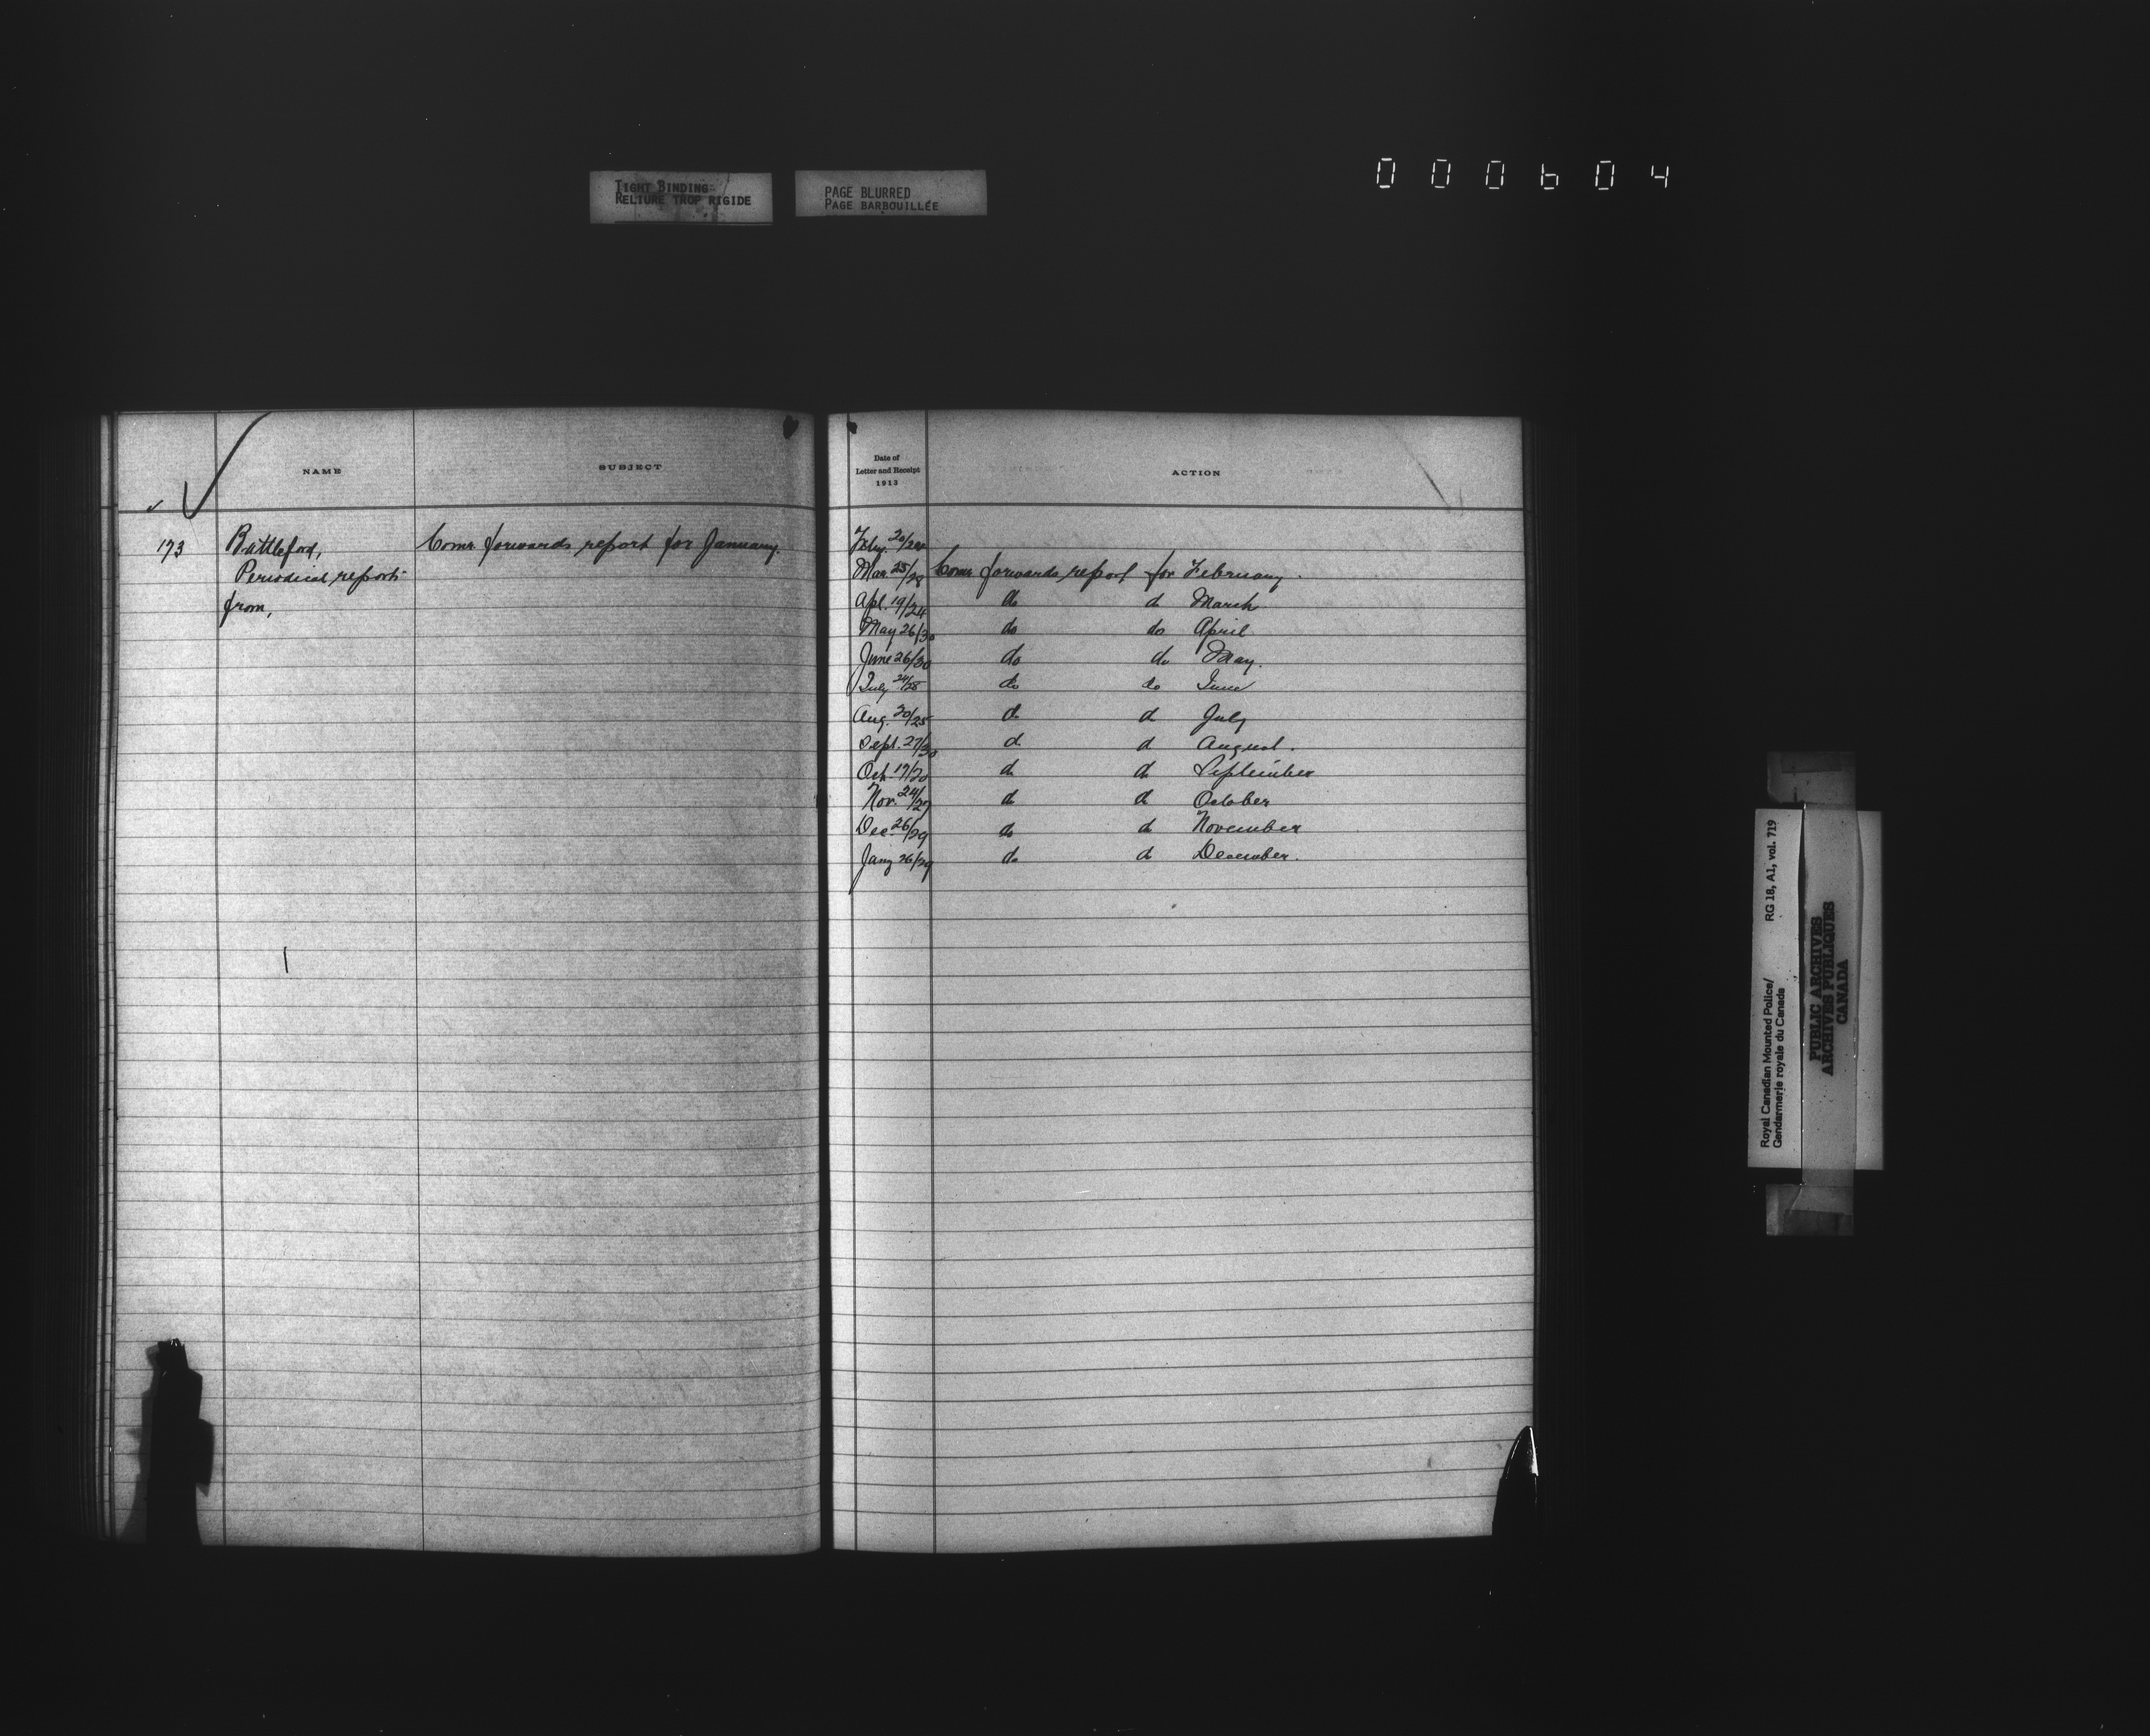 TIGHT BINDING
RELIURE TROP RIGIDE
PAGE BLURRED
PAGE BARBOUILLÉE
000604
NAME
SUBJECT
173
Battleford,
Comr. forwards report for January.
Periodical reports
from,
Date of
Letter and Receipt
1913
ACTION
Feby. 20/24
Mar. 25/28 Comr forwards report for February.
Apl. 19/24 do do March
May 26/30 do do April.
June 26/30 do do May.
July 24/28 do do June
Aug. 20/25 do do July
Sept. 27/30 do do August.
Oct. 17/20 do do September
Nov. 24/27 do do October
Dec. 26/29 do do November
Jany 26/29 do do December.
Royal Canadian Mounted Police/
Gendarmerie royale du Canada
RG 18, A1, vol. 719
PUBLIC ARCHIVES
ARCHIVES PUBLIQUES
CANADA